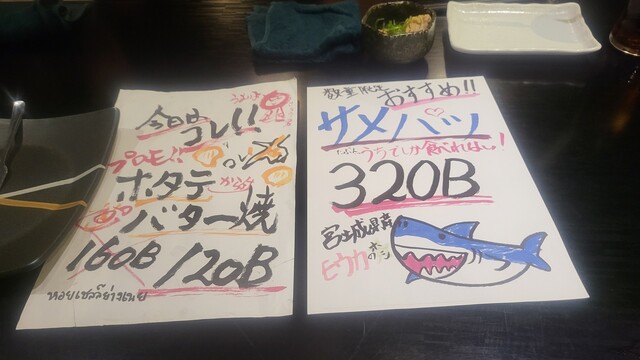 今日は
コレ!!
プロモ!!
ホタテ
バター焼
160B 120B
หอยเชลล์ย่างเนย
数量限定
おすすめ!!
サメハツ
うちでしか食べれない!
320B
宮城県産
モウカの
ホシ